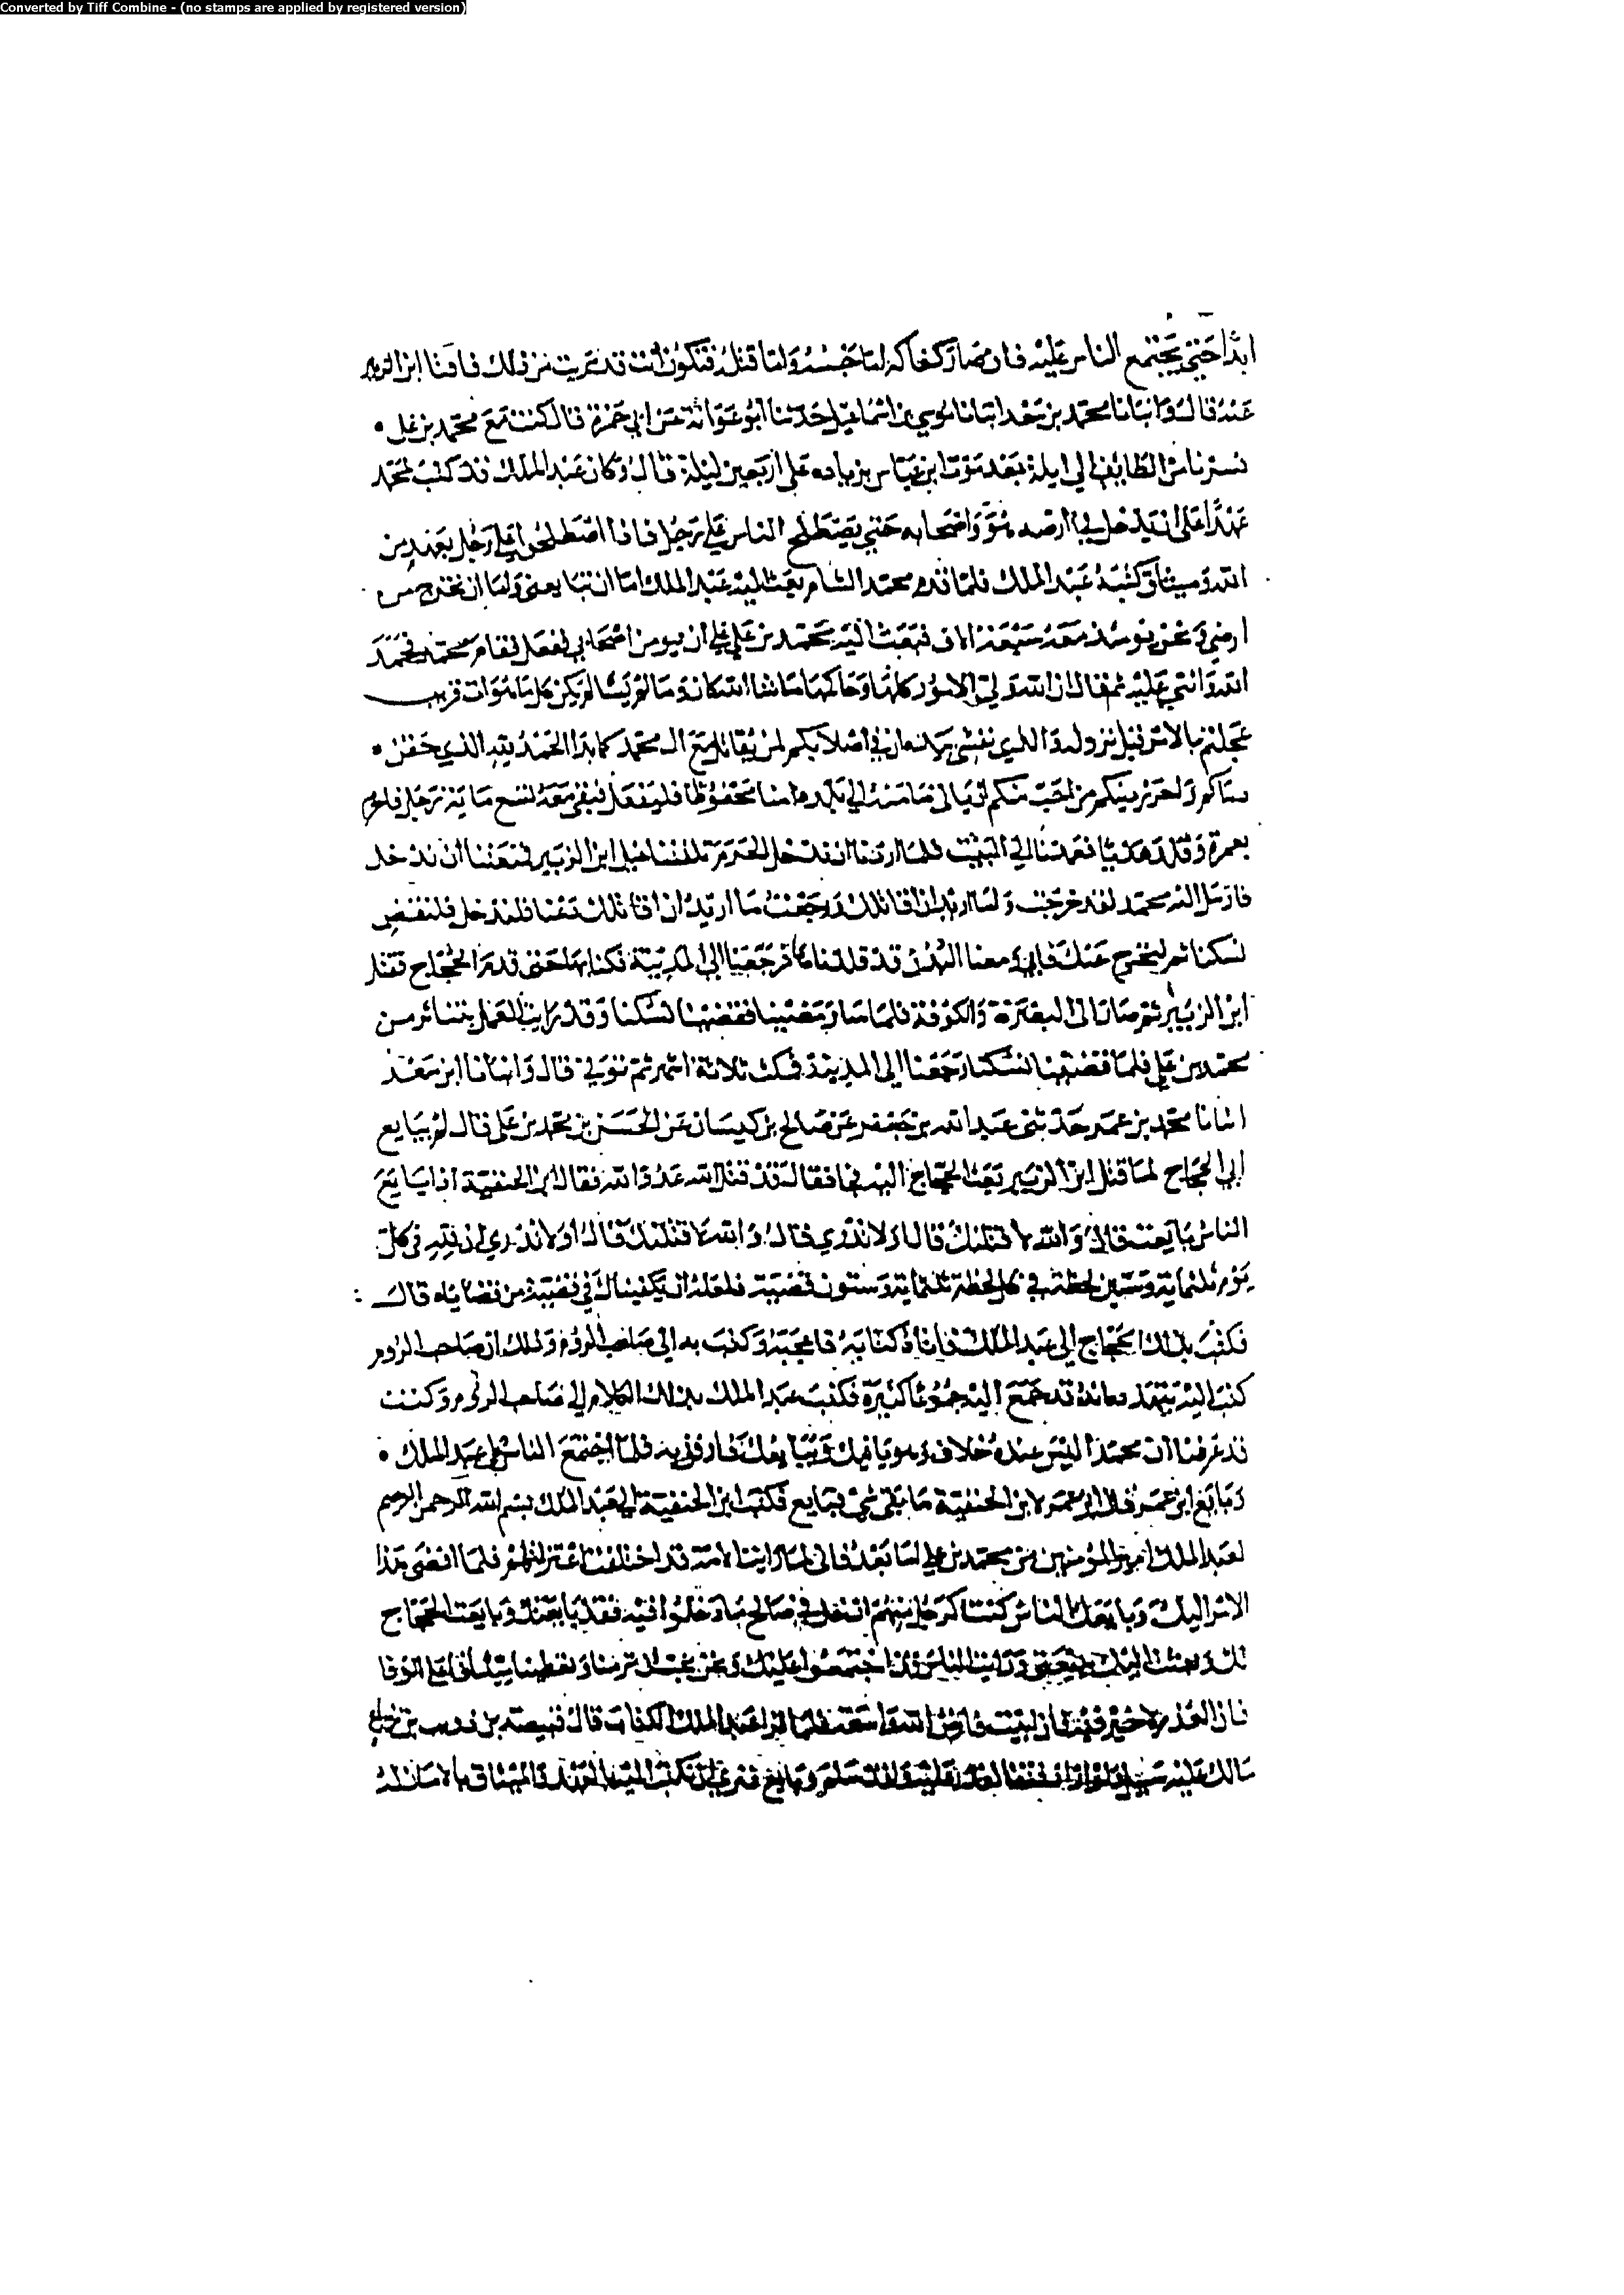 Converted by Tiff Combine - (no stamps are applied by registered version)
ابدا حتى يجتمع الناس عليه فان صار كفاكه اما حبسه واما قتله فتكون انت قد بريت من ذلك فافتا ابن الزبير
عنه قال وانبانا محمد بن سعد انبانا موسى بن اسماعيل حدثنا ابو عوانة عن ابي حمزة قال كنت مع محمد بن علي
فسرنا من الطايف الى ايلة بعد موت ابن عباس بزيادة على اربعين ليلة قال وكان عبد الملك قد كتب لمحمد
عهدا على ان يدخل في ارضه هو واصحابه حتى يصطلح الناس على رجل فاذا اصطلحوا على رجل بعهد من
الله وميثاق كتبه عبد الملك فلما قدم محمد الشام بعث اليه عبد الملك اما ان تبايعني واما ان تخرج من
ارضي ونحن يومئذ معه سبعة الاف فبعث اليه محمد بن علي على ان يومن اصحابي ففعل فقام محمد فحمد
الله واثنى عليه ثم قال ان الله ولي الامور كلها وحاكمها ما شا الله كان وما لم يشا لم يكن كل ما هو ات قريب
عجلتم بالامر قبل نزوله والذي نفسي بيده ان في اصلابكم لمن يقاتل مع ال محمد كما بدا الحمد لله الذي حقن
دماكم واحرز دينكم من احب منكم ان ياتي مامنه الى بلده امنا محفوظا فليفعل فبقى معه تسع ماية رجل فاحرم
بعمرة وقلد هديا فعمدنا الى البيت فلما اردنا ان ندخل الحرم تلقتنا خيل ابن الزبير فمنعتنا ان ندخل
فارسل اليه محمد لقد خرجت وما اريد ان اقاتلك ورجعت ما اريد ان اقاتلك دعنا فلندخل فلنقض
نسكنا ثم لنخرج عنك فابى ومعنا البدن قد قلدناها فرجعنا الى المدينة فكنا بها حتى قدم الحجاج فقتل
ابن الزبير ثم صار الى البصرة والكوفة فلما سار مضينا فقضينا نسكنا وقد رايت القمل يتناثر من
محمد بن علي فلما قضينا نسكنا رجعنا الى المدينة فمكث ثلاثة اشهر ثم توفي قال وانبانا ابن سعد
انبانا محمد بن عمر حدثني عبد الله بن جعفر عن صالح بن كيسان عن الحسن بن محمد بن علي قال لم يبايع
ابي الحجاج لما قتل ابن الزبير بعث الحجاج اليه فقال قد قتل الله عدو الله فقال ابن الحنفية اذا بايع
الناس بايعت قال والله لاقتلنك قال اولا تدري قال والله لاقتلنك قال اولا تدري ان لله في كل
يوم ثلثماية وستين لحظة في كل لحظة ثلثماية وستون قضية فلعله ان يكفيناك في قضية من قضاياه قال
فكتب بذلك الحجاج الى عبد الملك فاتاه كتابه فاعجبه وكتب به الى صاحب الروم وذلك ان صاحب الروم
كتب اليه يتهدده انه قد جمع اليه جموعا كثيرة فكتب عبد الملك بذلك الكلام الى صاحب الروم وكتبت
قد عرفنا ان محمدا ليس عنده خلاف وهو ياتيك ويبايعك فارفق به فلما اجتمع الناس على عبد الملك
وبايع ابن عمر قال ابن عمر لابن الحنفية ما بقى شي فبايع فكتب ابن الحنفية الى عبد الملك بسم الله الرحمن الرحيم
لعبد الملك امير المؤمنين من محمد بن علي اما بعد فاني لما رايت الامة قد اختلفت اعتزلتهم فلما افضى هذا
الامر اليك وبايعك الناس كنت كرجل منهم ادخل في صالح ما دخلوا فيه فقد بايعتك وبايعت الحجاج
لك وبعثت اليك ببيعتي ورايت الناس قد اجتمعوا عليك ونحن نحب ان تومنا وتعطينا ميثاقا على الوفا
فان الغدر لا خير فيه فان ابيت فارض الله واسعة فلما قرا عبد الملك الكتاب قال قبيصة بن ذويب
مالك عليه سبيل ولقد سلم وبايع فنرى ان تكتب اليه العهد والميثاق بالامان له